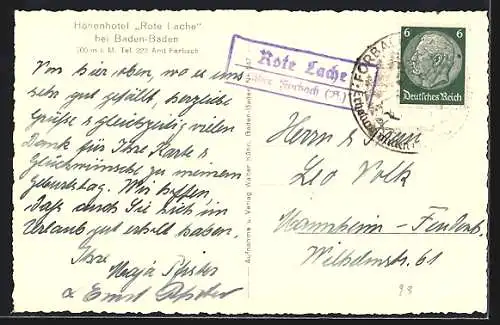 Höhenhotel „Rote Lache"
bei Baden-Baden
700 m ü. M. Tel. 222 Amt Forbach
Von hier oben, wo es uns
sehr gut gefällt, herzliche
Grüße & gleichzeitig vielen
Dank für Ihre Karte &
Glückwünsche zu meinem
Geburtstag. Wir hoffen,
daß auch Sie sich im
Urlaub gut erholt haben.
Ihre
Maja Pfister
& Ernst Pfister
Aufnahme u. Verlag Walter Höhn, Baden-Baden
Rote Lache
über Forbach (B.)
FORBACH
6 6
Deutsches Reich
Herrn &
Leo Volk
Mannheim-Feudenh.
Wilhelmstr. 61
93